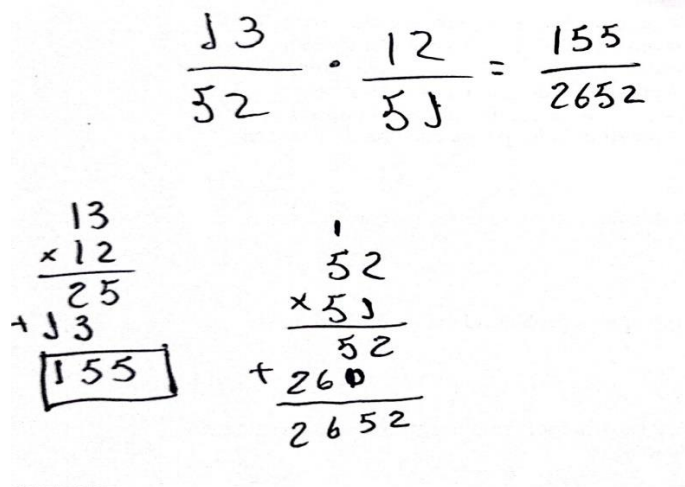 13/52 · 12/51 = 155/2652
13
× 12
25
+ 13
155
1
52
× 51
52
+ 260
2652